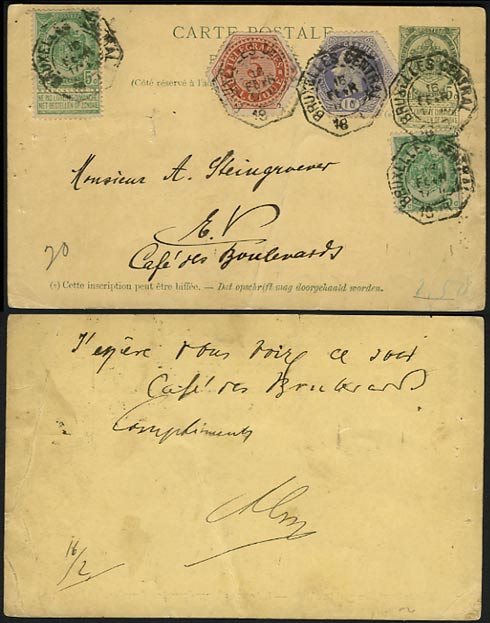 CARTE POSTALE
(Côté réservé à l'ad
BRUXELLES CENTRAL
BRUXELLES CENTRAL
BRUXELLES CENTRAL
BRUXELLES CENTRAL
NE PAS LIVRER LE DIMANCHE
NIET BESTELLEN OP ZONDAG
Monsieur A. Steingroever
E. V
Café des Boulevards
20
(*) Cette inscription peut être biffée. — Dat opschrift mag doorgehaald worden.
J'espère vous voir ce soir
Café des Boulevards
Compliments
16/2